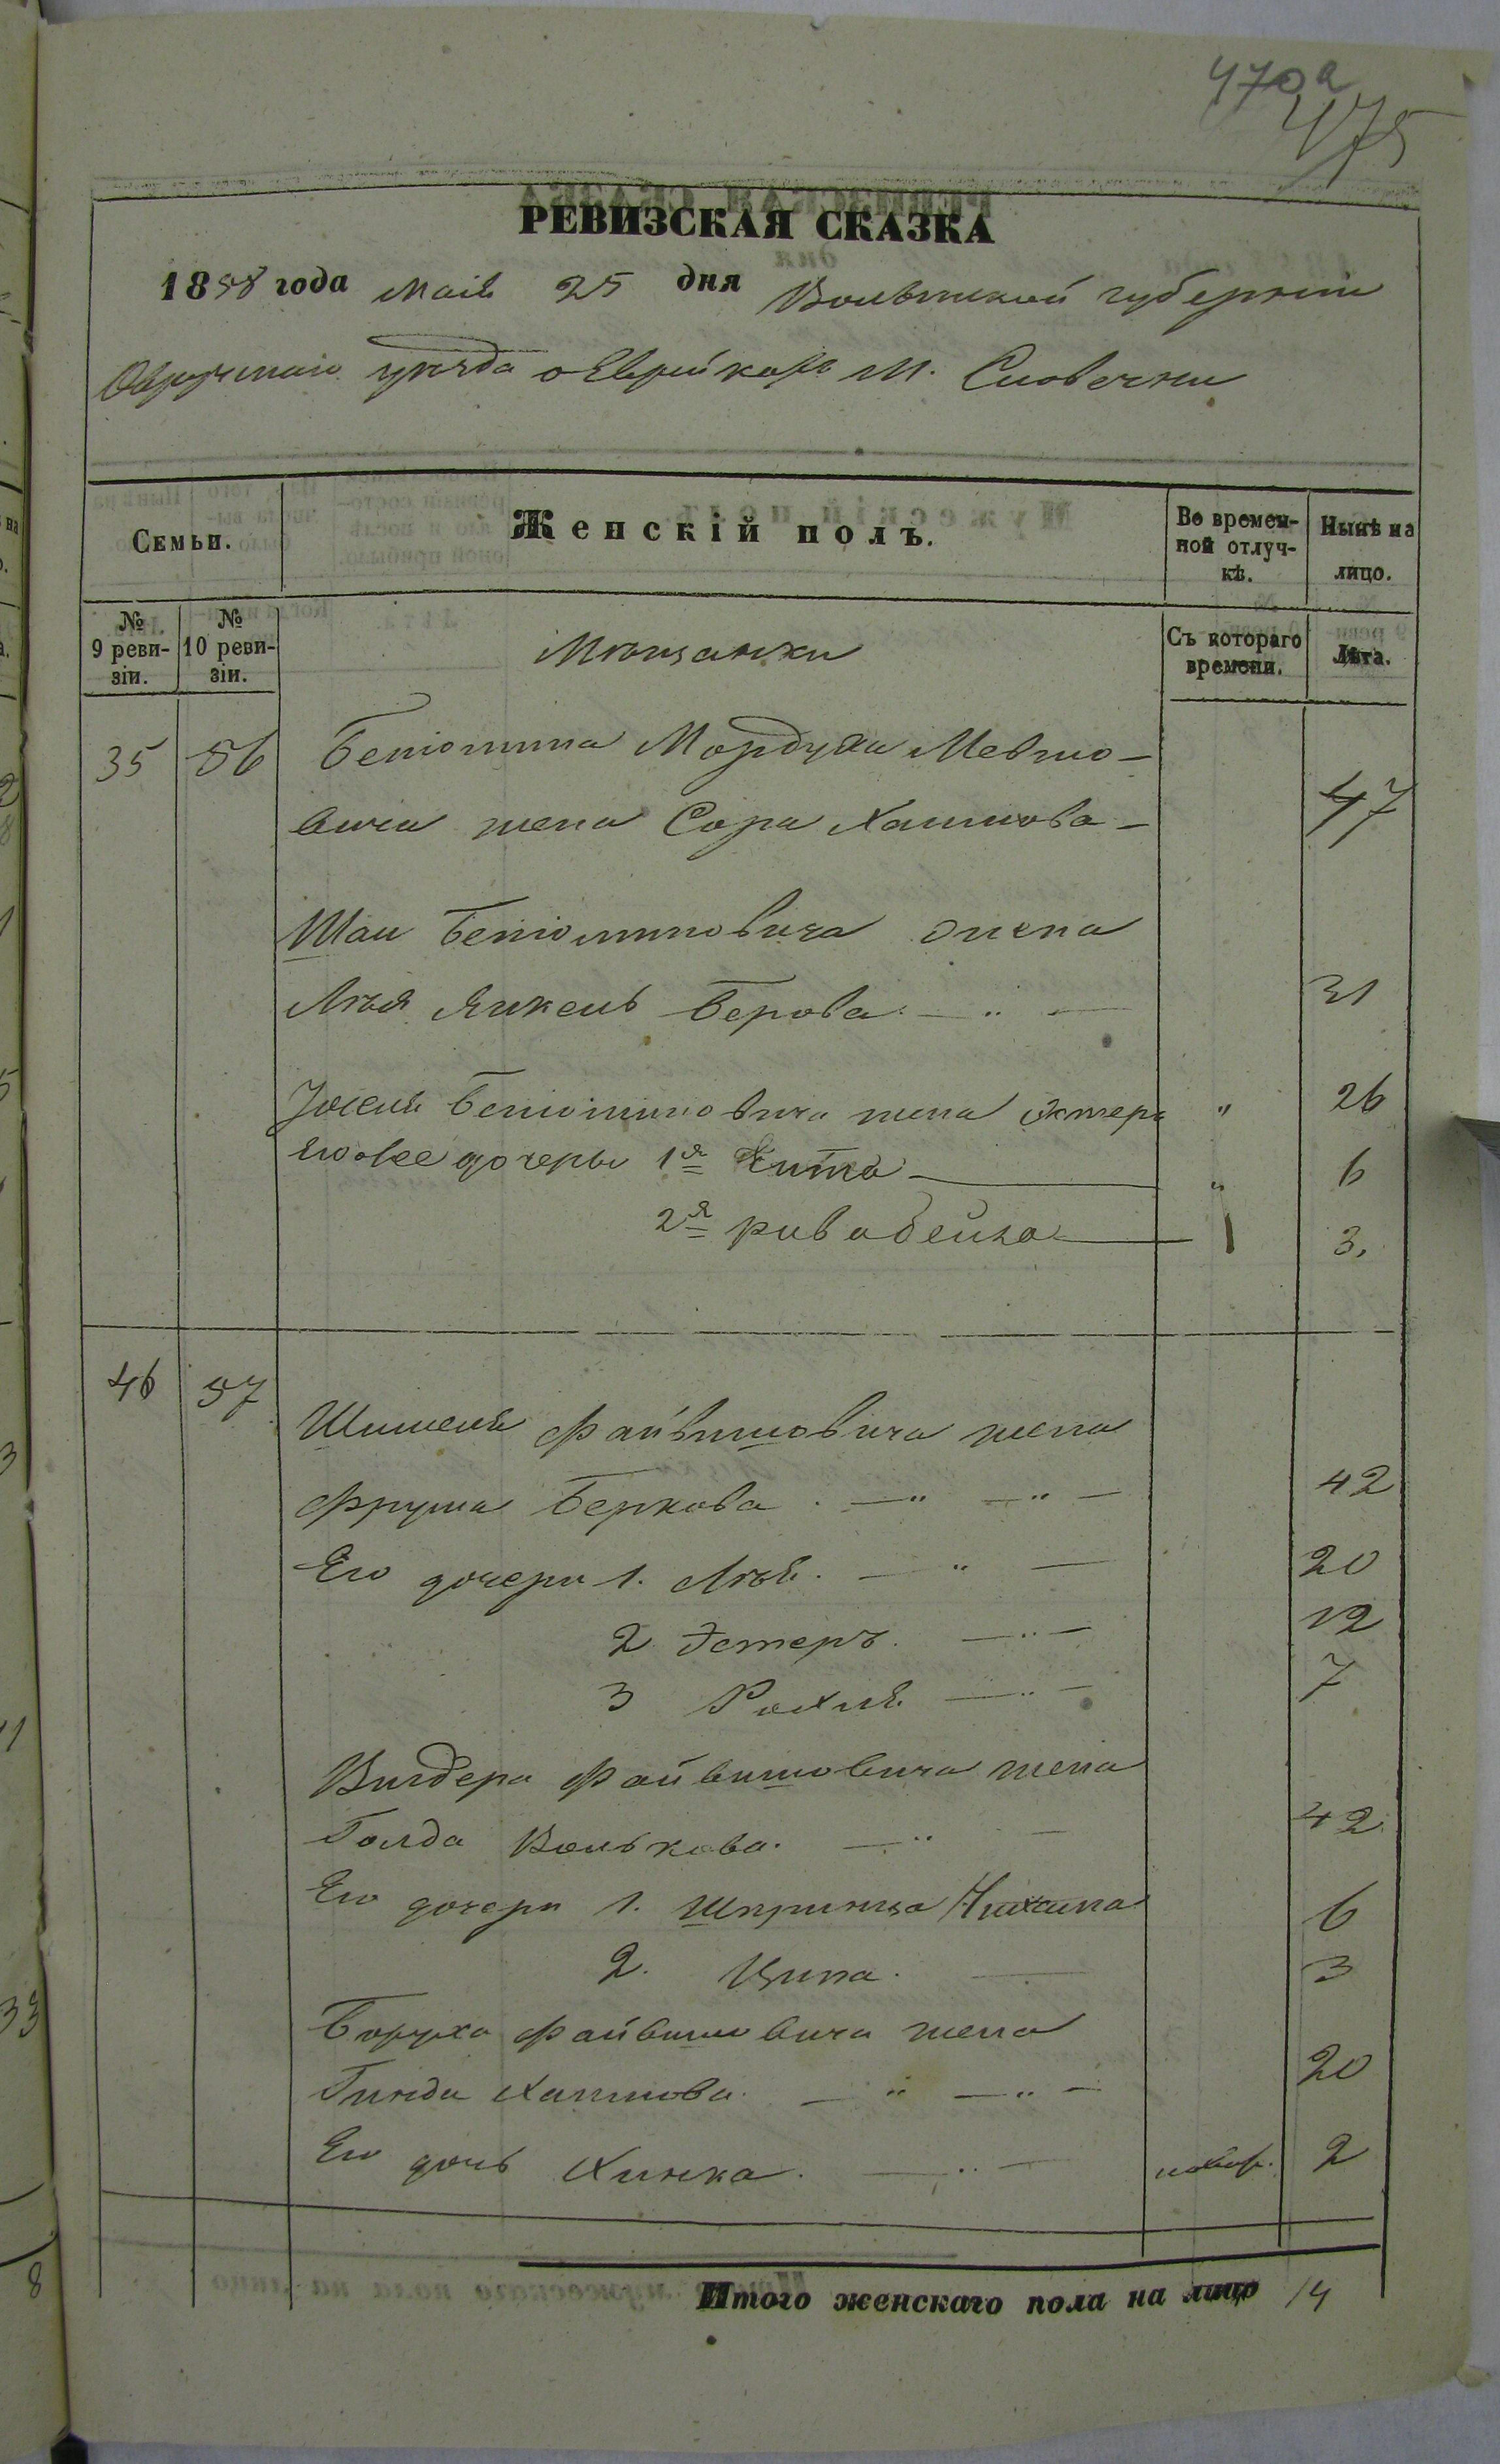 470а
475
РЕВИЗСКАЯ СКАЗКА
1858 года Маія 25 дня Волынской губерніи
Овручскаго уѣзда о Еврейкахъ М. Словечны
Семьи.
Женскій полъ.
Во времен-
ной отлуч-
кѣ.
Нынѣ на
лицо.
№
9 реви-
зіи.
№
10 реви-
зіи.
Мѣщанки
Съ котораго
времени.
Лѣта.
35 56 Беніомина Мордуха
вича жена Сора Хаимова 47
Шаи Беніоминовича жена
Лѣя Янкель Берова 31
Іоселя Беніоминовича жена Эстера " 26
дочеры 1я " 6
2я рива бейла 3.
46 57
Шимеля Файвишовича жена
Фрума Беркова . 42
Его дочери 1. Лѣя. 20
2 Эстеръ. 12
3 Рохля. 7
Вигдера Файвишовича жена
Голда Волькова. 42
Его дочери 1. Шпринца 6
2. Ципа. 3
Боруха Файвишовича жена
Гинда Хаимова. 20
Его дочь Хинка. 2
Итого женскаго пола на лицо 14